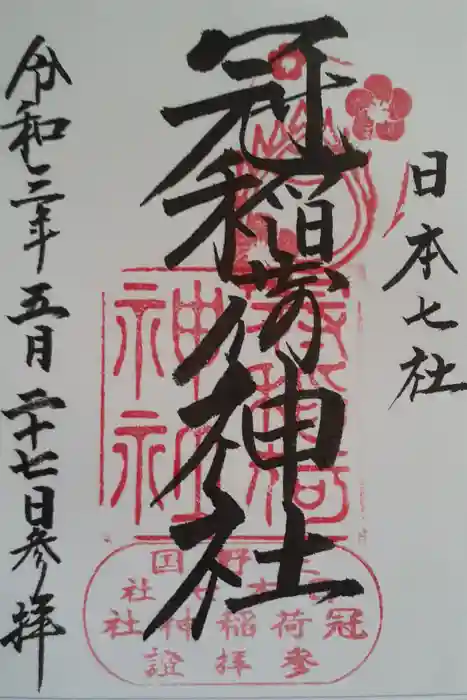 日本七社
冠稲荷神社
令和三年五月二十七日参拝
冠稲荷神社
参拝證